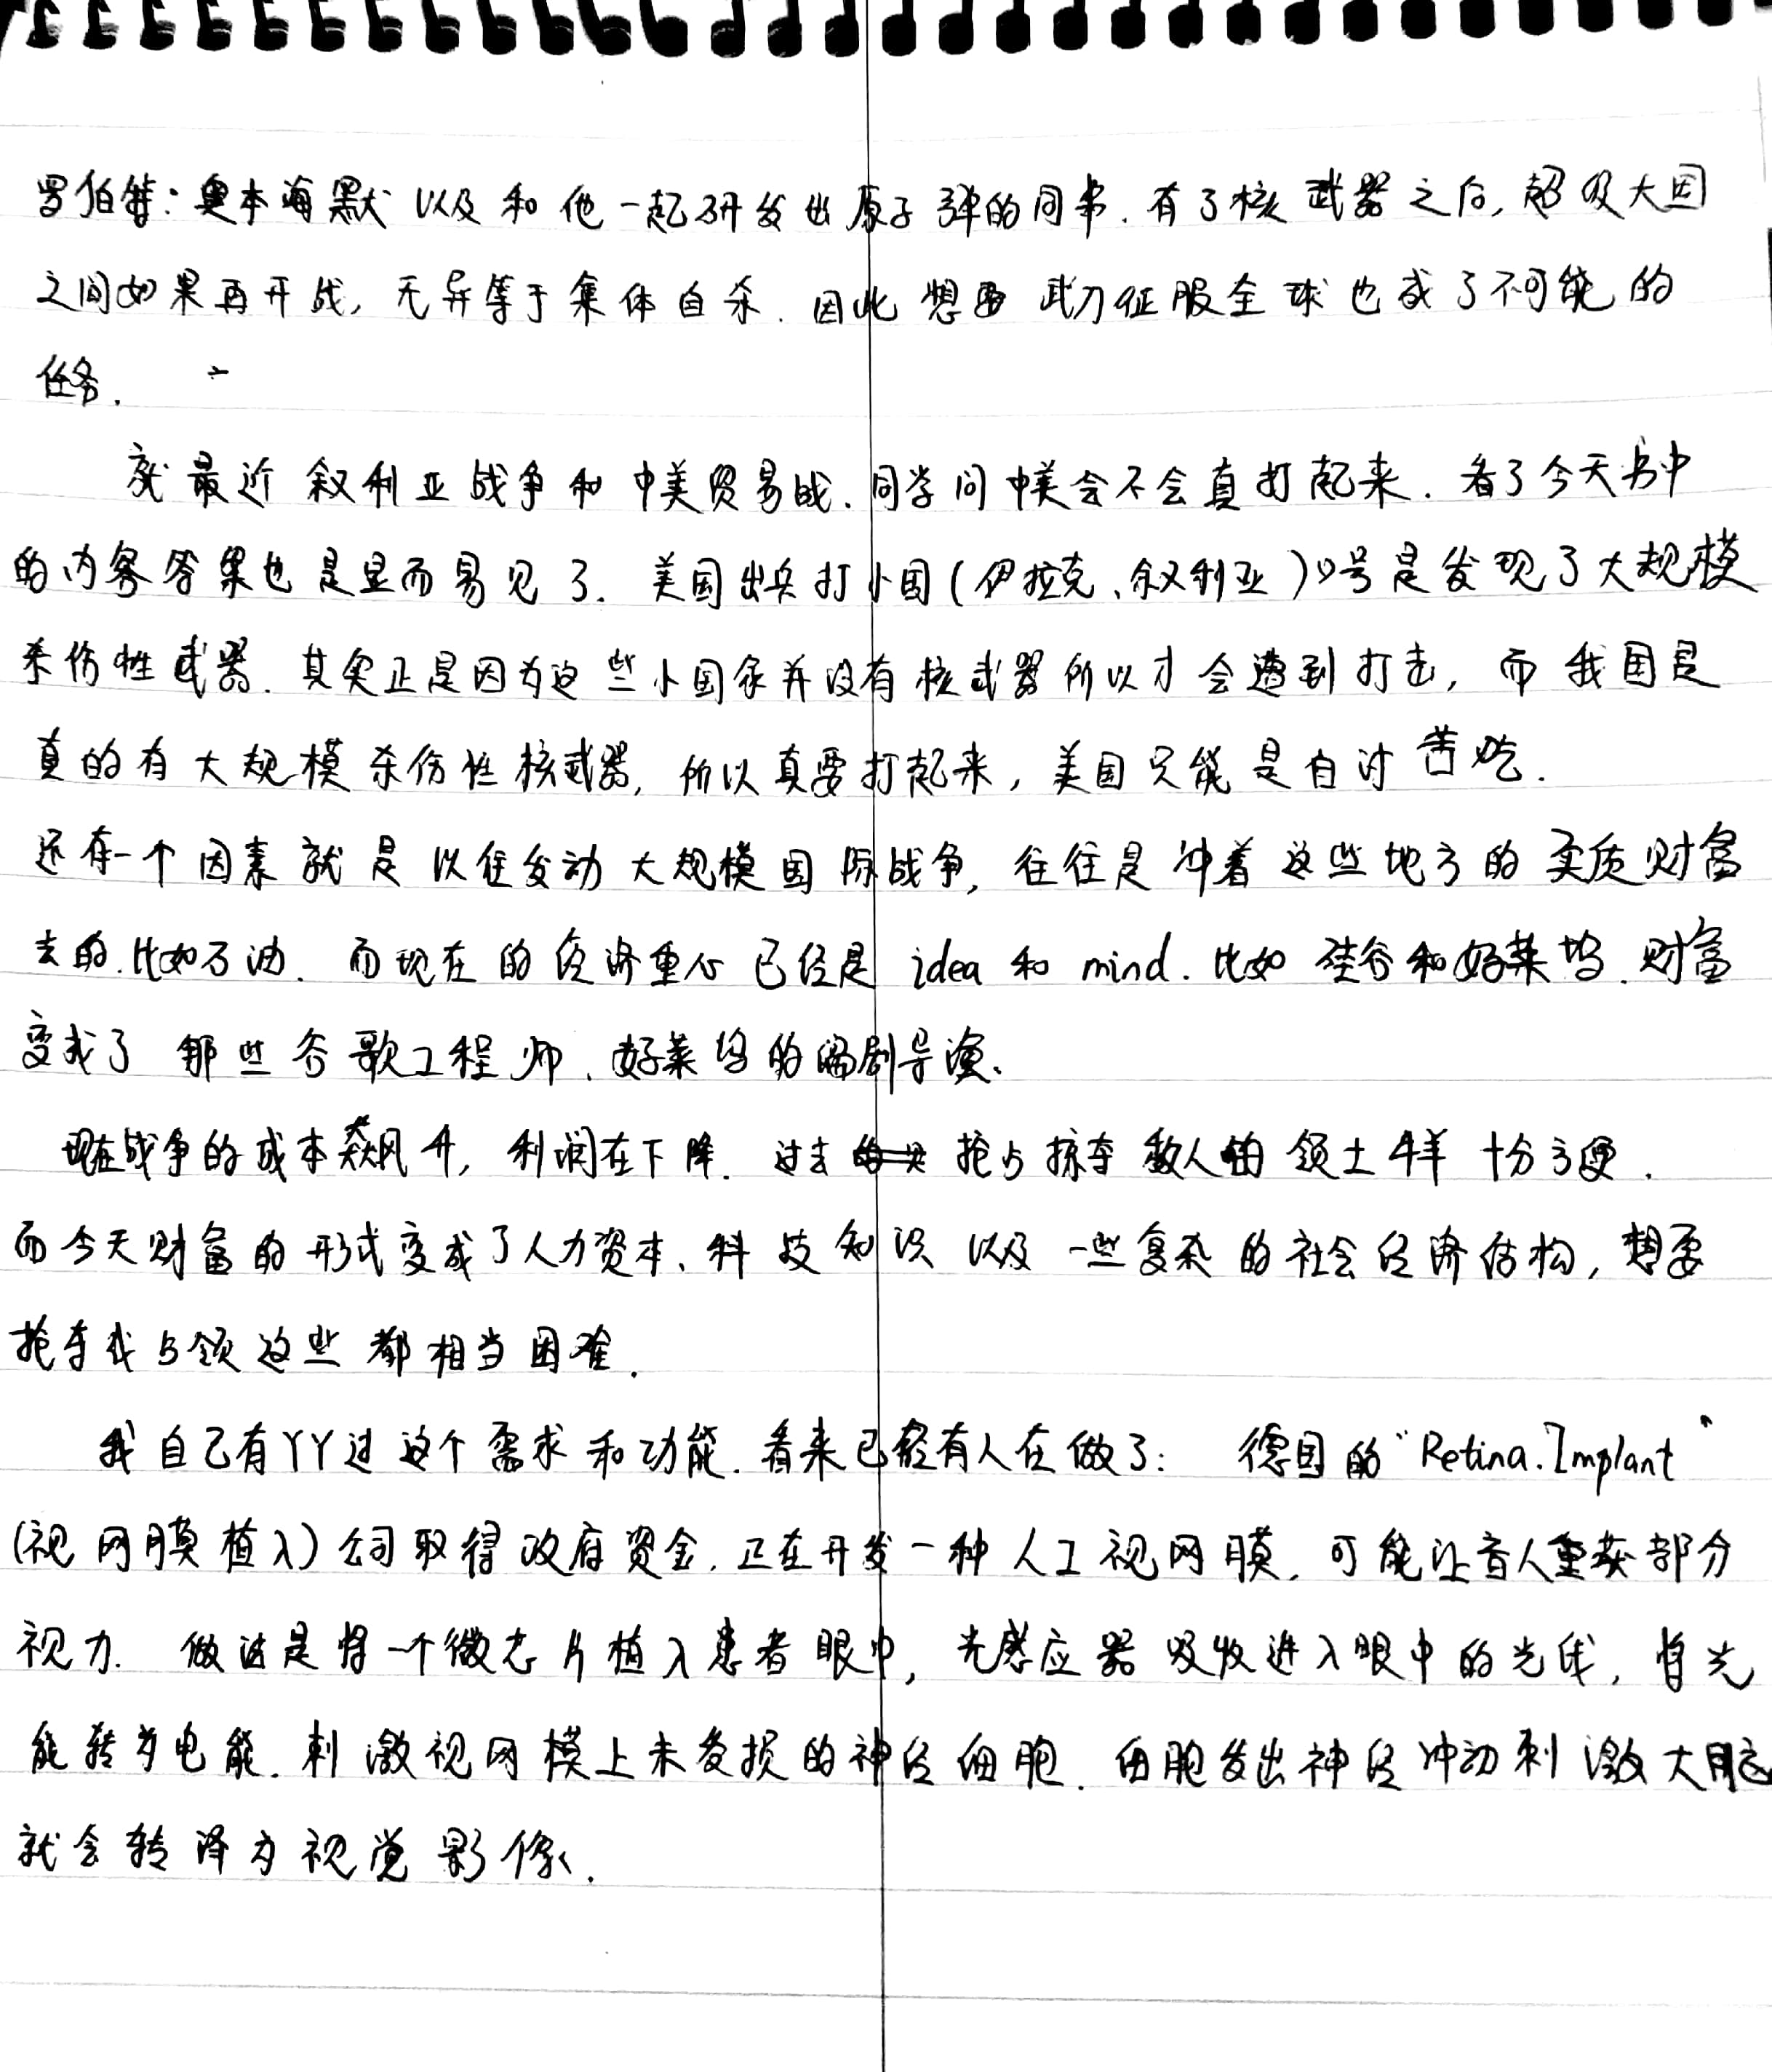 罗伯特：奥本海默以及和他一起研发出原子弹的同事. 有了核武器之后, 超级大国
之间如果再开战, 无异等于集体自杀. 因此想要武力征服全球也成了不可能的
任务.
就最近叙利亚战争和中美贸易战. 同学问中美会不会真打起来. 看了今天书中
的内容答案也是显而易见了. 美国出兵打小国(伊拉克、叙利亚)口号是发现了大规模
杀伤性武器. 其实正是因为这些小国家并没有核武器所以才会遭到打击, 而我国是
真的有大规模杀伤性核武器, 所以真要打起来, 美国只能是自讨苦吃.
还有一个因素就是以往发动大规模国际战争, 往往是冲着这些地方的实质财富
去的. 比如石油. 而现在的经济重心已经是 idea 和 mind. 比如硅谷和好莱坞. 财富
变成了那些谷歌工程师、好莱坞的编剧导演.
现在战争的成本飙升, 利润在下降. 过去抢占掠夺敌人的领土牛羊十分方便.
而今天财富的形式变成了人力资本、科技知识以及一些复杂的社会经济结构, 想要
抢夺或占领这些都相当困难.
我自己有YY过这个需求和功能. 看来已经有人在做了: 德国的“Retina.Implant”
(视网膜植入)公司取得政府资金. 正在开发一种人工视网膜, 可能让盲人重获部分
视力. 做法是将一个微芯片植入患者眼中, 光感应器吸收进入眼中的光线, 将光
能转为电能. 刺激视网模上未受损的神经细胞. 细胞发出神经冲动刺激大脑
就会转译为视觉影像.